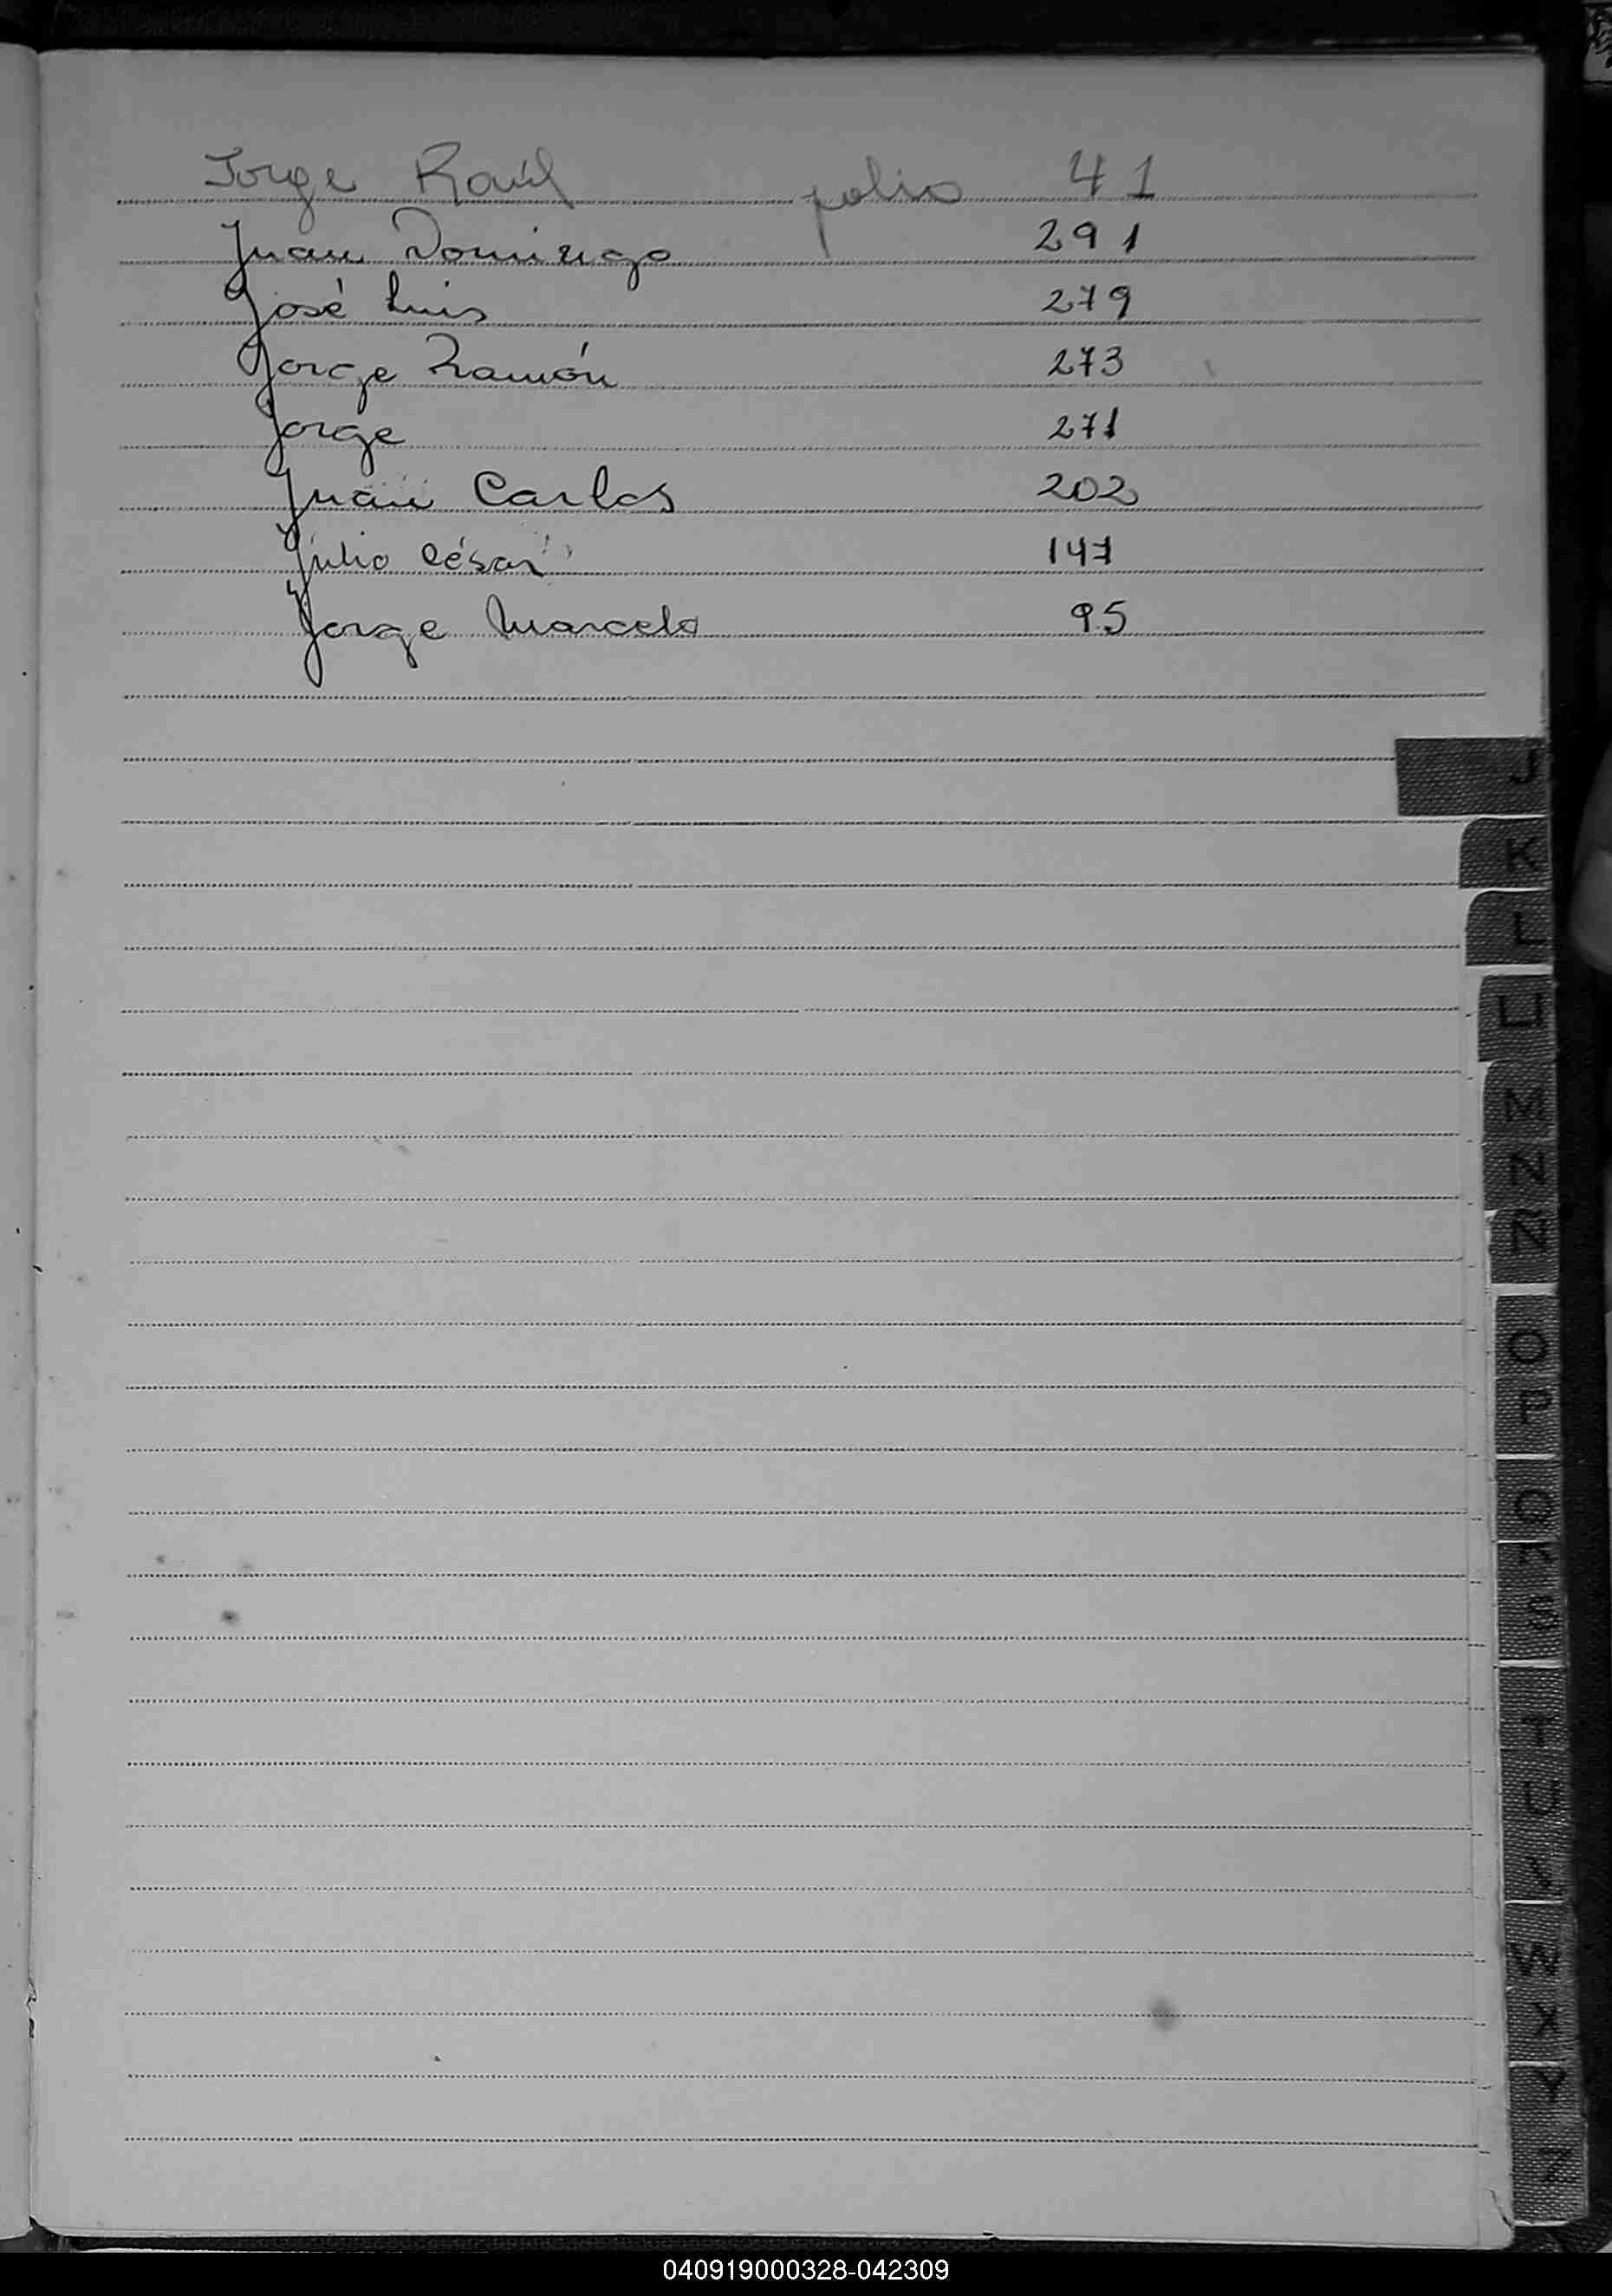 Jorge Raúl folio 41
Juan Domingo 291
José Luis 279
Jorge Ramón 273
Jorge 271
Juan Carlos 202
Julio César 147
Jorge Marcelo 95
J
K
L
LL
M
N
Ñ
O
P
Q
R
S
T
U
V
W
X
Y
Z
040919000328-042309